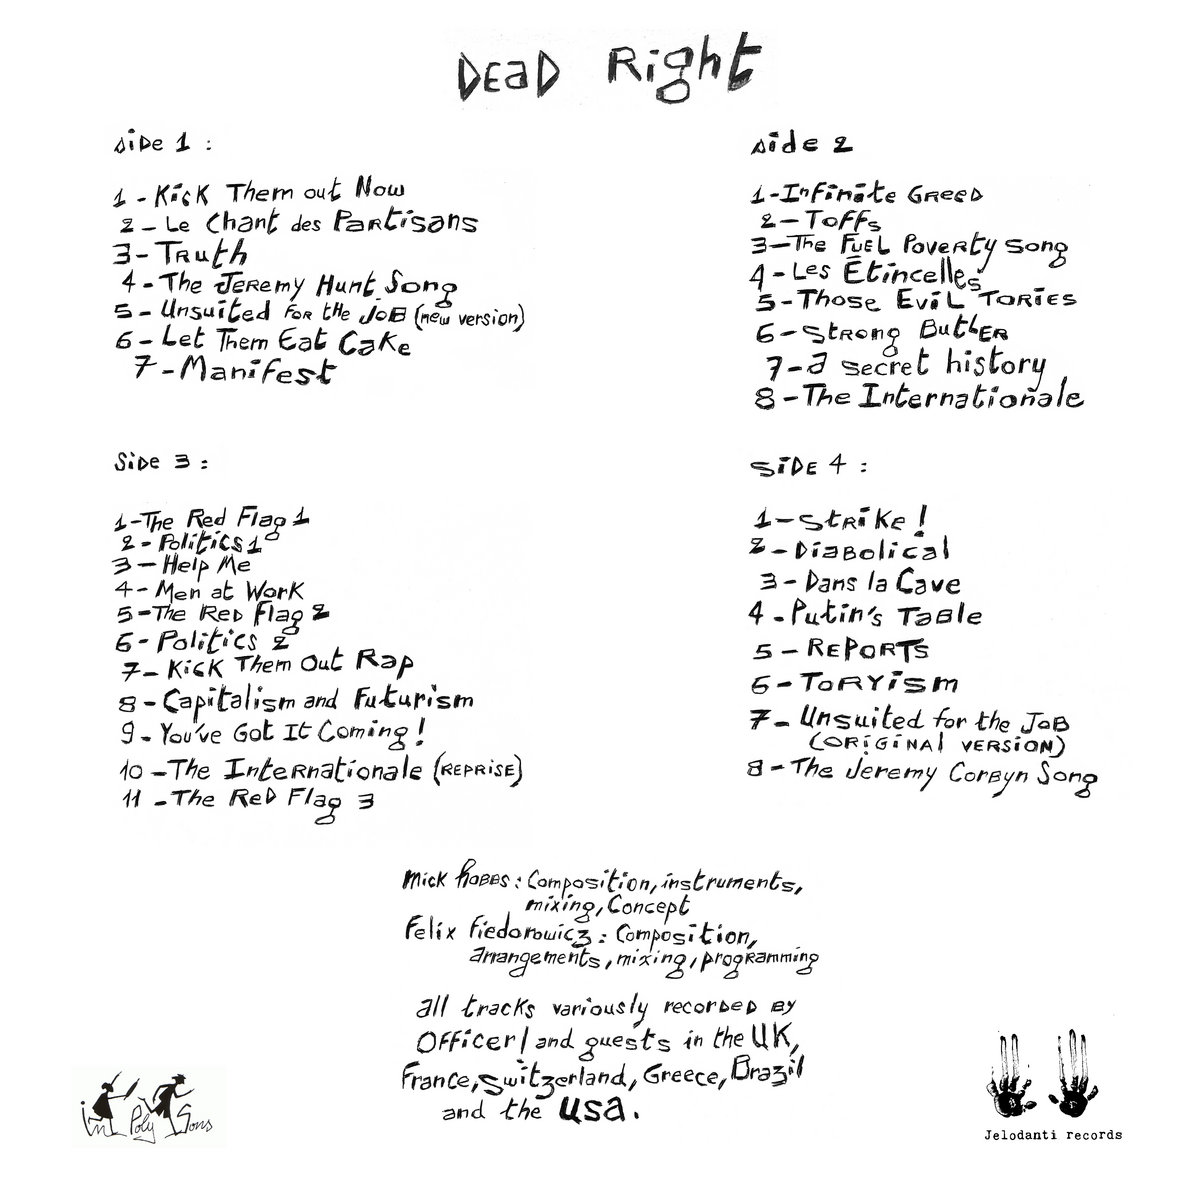 Dead Right
Side 1 :
1 - Kick Them out Now
2 - Le Chant des Partisans
3 - Truth
4 - The Jeremy Hunt Song
5 - Unsuited for the Job (new version)
6 - Let Them Eat Cake
7 - Manifest
Side 2
1 - Infinite Greed
2 - Toffs
3 - The Fuel Poverty Song
4 - Les Étincelles
5 - Those Evil Tories
6 - Strong Butler
7 - a secret history
8 - The Internationale
Side 3 :
1 - The Red Flag 1
2 - Politics 1
3 - Help Me
4 - Men at Work
5 - The Red Flag 2
6 - Politics 2
7 - Kick Them Out Rap
8 - Capitalism and Futurism
9 - You've Got It Coming!
10 - The Internationale (reprise)
11 - The Red Flag 3
Side 4 :
1 - Strike!
2 - Diabolical
3 - Dans la Cave
4 - Putin's Table
5 - Reports
6 - Toryism
7 - Unsuited for the Job
(original version)
8 - The Jeremy Corbyn Song
Mick Hobbs : Composition, instruments,
mixing, Concept
Felix Fiedorowicz : Composition,
arrangements, mixing, programming
all tracks variously recorded by
Officer! and guests in the UK,
France, Switzerland, Greece, Brazil
and the USA.
in Poly Sons
Jelodanti records